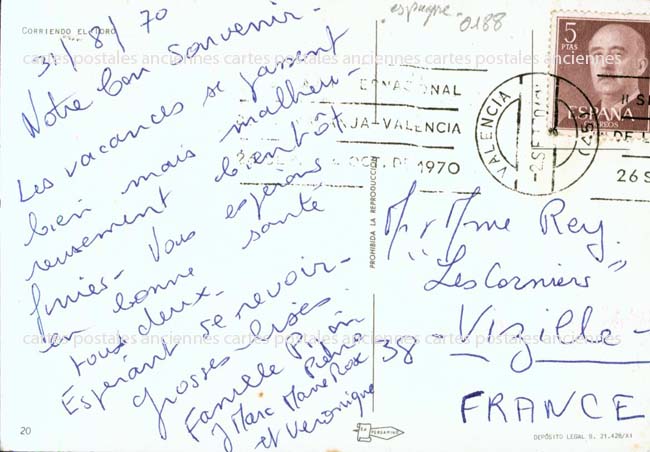 CORRIENDO EL TORO
espagne
0188
31/8/70
Notre bon souvenir.
Les vacances se passent
bien mais malheu-
reusement bientôt
finies. Vous espérons
en bonne santé
tous deux.
Espérant se revoir.
grosses bises.
Famille
Pietro
J Marc Marie Rose
et Véronique
20
PROHIBIDA LA REPRODUCCION
5
PTAS
ESPAÑA
CORREOS
NACIONAL
VALENCIA
OCT. DE 1970
VALENCIA
2 SET
II S
DE L
26 S
Mr & Mme Rey.
"Les Corniers"
38 - Vizille -
FRANCE
PERGAMINO
DEPÓSITO LEGAL B. 21.428/XI
cartes postales anciennes cartes postales anciennes cartes postales anciennes
cartes postales anciennes cartes postales anciennes cartes postales anciennes
cartes postales anciennes cartes postales anciennes cartes postales anciennes